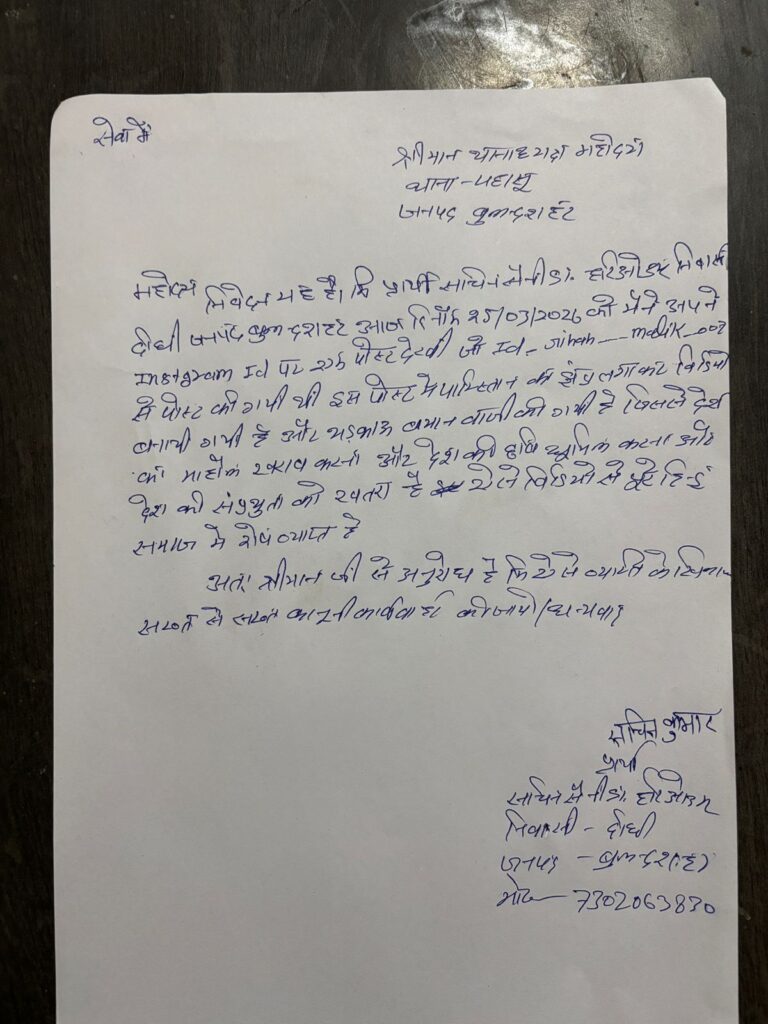 सेवा में
श्रीमान थानाध्यक्ष महोदय
थाना - पहासू
जनपद बुलन्दशहर
महोदय निवेदन यह है कि प्रार्थी सचिन सैनी S/o हरिओम निवासी
दीघी जनपद बुलन्दशहर आज दिनाँक 25/03/2026 को मैने अपने
Instagram Id पर एक पोस्ट देखी जो Id - Jihan___malik_002
से पोस्ट की गयी थी इस पोस्ट मे पाकिस्तान का झंडा लगाकर विडियो
बनायी गयी है और भड़काऊ बयान वाजी की गयी है जिससे देश
का माहोल खराब करना और देश की छवि धूमिल करना और
देश की संप्रभुता को खतरा है ऐसे विडियो से पूरे हिन्दू
समाज मे रोष व्याप्त है
अतः श्रीमान जी से अनुरोध है कि ऐसे व्यक्ति के खिलाफ
सख्त से सख्त कानूनी कार्यवाही की जाये / धन्यवाद
सचिन कुमार
प्रार्थी
सचिन सैनी S/o हरिओम
निवासी - दीघी
जनपद - बुलन्दशहर
मो०— 7302063830